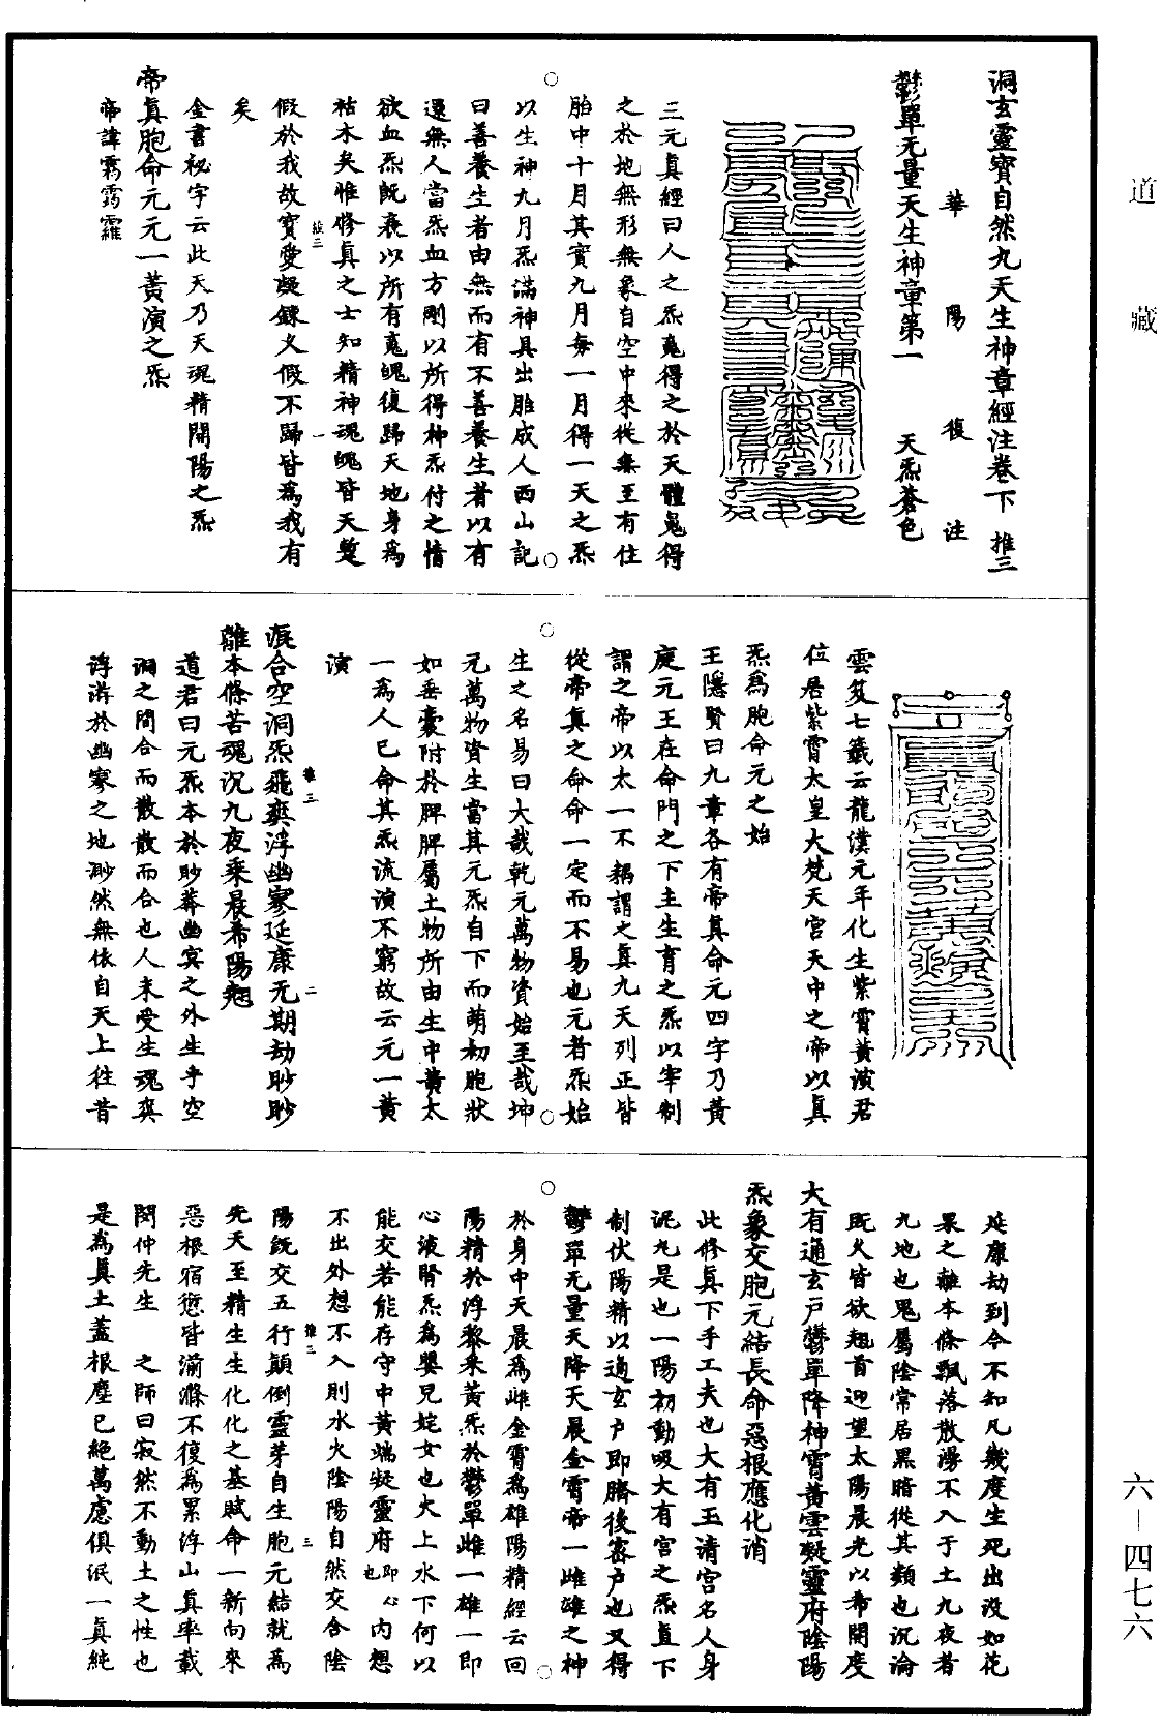 道藏
洞玄靈寶自然九天生神章經注卷下 推三
華陽復注
鬱單无量天生神章第一 天炁蒼色
三元真經曰人之炁魂得之於天體魄得
之於地無形無象自空中來從無至有住
胎中十月其實九月每一月得一天之炁
以生神九月炁滿神具出胎成人西山記
曰善養生者由無而有不善養生者以有
還無人當炁血方剛以所得神炁付之情
欲血炁既衰以所有魂魄復歸天地身為
枯木矣惟修真之士知精神魂魄皆天蹔
推三 一
假於我故寶愛凝鍊久假不歸皆為我有
矣
金書祕字云此天乃天魂精開陽之炁
帝真胞命元元一黃演之炁
帝諱霐霶霳
雲笈七籤云龍漢元年化生紫霄黃演君
位居紫霄太皇大梵天宮天中之帝以真
炁為胞命元之始
王隱賢曰九章各有帝真命元四字乃黃
庭元王在命門之下主生育之炁以宰制
謂之帝以太一不耦謂之真九天列正皆
從帝真之命命一定而不易也元者炁始
生之名易曰大哉乾元萬物資始至哉坤
元萬物資生當其元炁自下而萌初胞狀
如垂囊附於脾脾屬土物所由生中黃太
一為人已命其炁流演不窮故云元一黃
演
推三 二
混合空洞炁飛爽浮幽寥延康无期劫眇眇
離本條苦魂沉九夜乘晨希陽翹
道君曰元炁本於眇莽幽冥之外生乎空
洞之間合而散散而合也人未受生魂爽
浮游於幽寥之地渺然無依自天上往昔
延康劫到今不知凡幾度生死出沒如花
果之離本條飄落散蕩不入于土九夜者
九地也鬼屬陰常居黑暗從其類也沉淪
既久皆欲翹首迎望太陽晨光以希開度
大有通玄戶鬱單降神霄黃雲凝靈府陰陽
炁象交胞元結長命惡根應化消
此修真下手工夫也大有玉清宮名人身
泥丸是也一陽初動吸大有宮之炁直下
制伏陽精以通玄戶即臍後密戶也又得
鬱單无量天降天晨金霄帝一雌雄之神
於身中天晨為雌金霄為雄陽精經云回
陽精於浮黎采黃炁於鬱單雌一雄一即
心液腎炁為嬰兒姹女也火上水下何以
能交若能存守中黃端凝靈府即心也內想
不出外想不入則水火陰陽自然交合陰
推三 三
陽既交五行顛倒靈芽自生胞元結就為
先天至精生生化化之基賦命一新向來
惡根宿愆皆湔滌不復為累浮山真率載
閔仲先生 之師曰寂然不動土之性也
是為真土蓋根塵已絕萬慮俱泯一真純
六–四七六